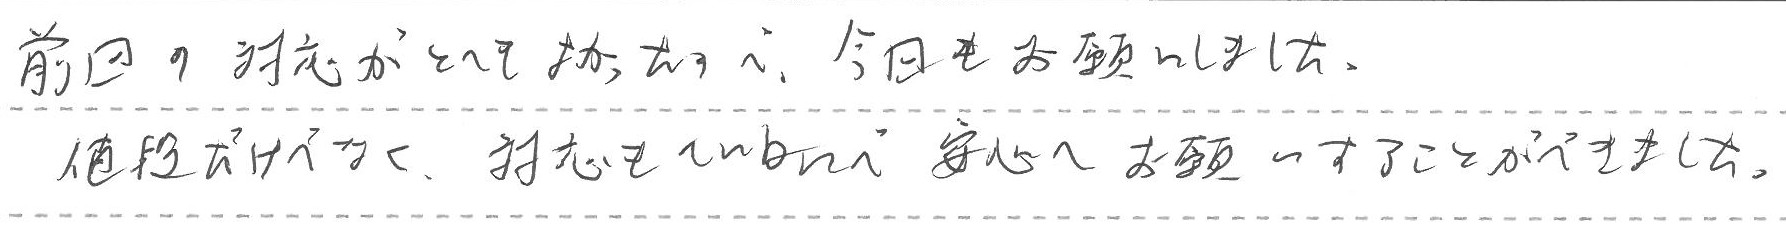 前回の対応がとてもよかったので、今回もお願いしました。
値段だけでなく、対応もていねいで安心してお願いすることができました。